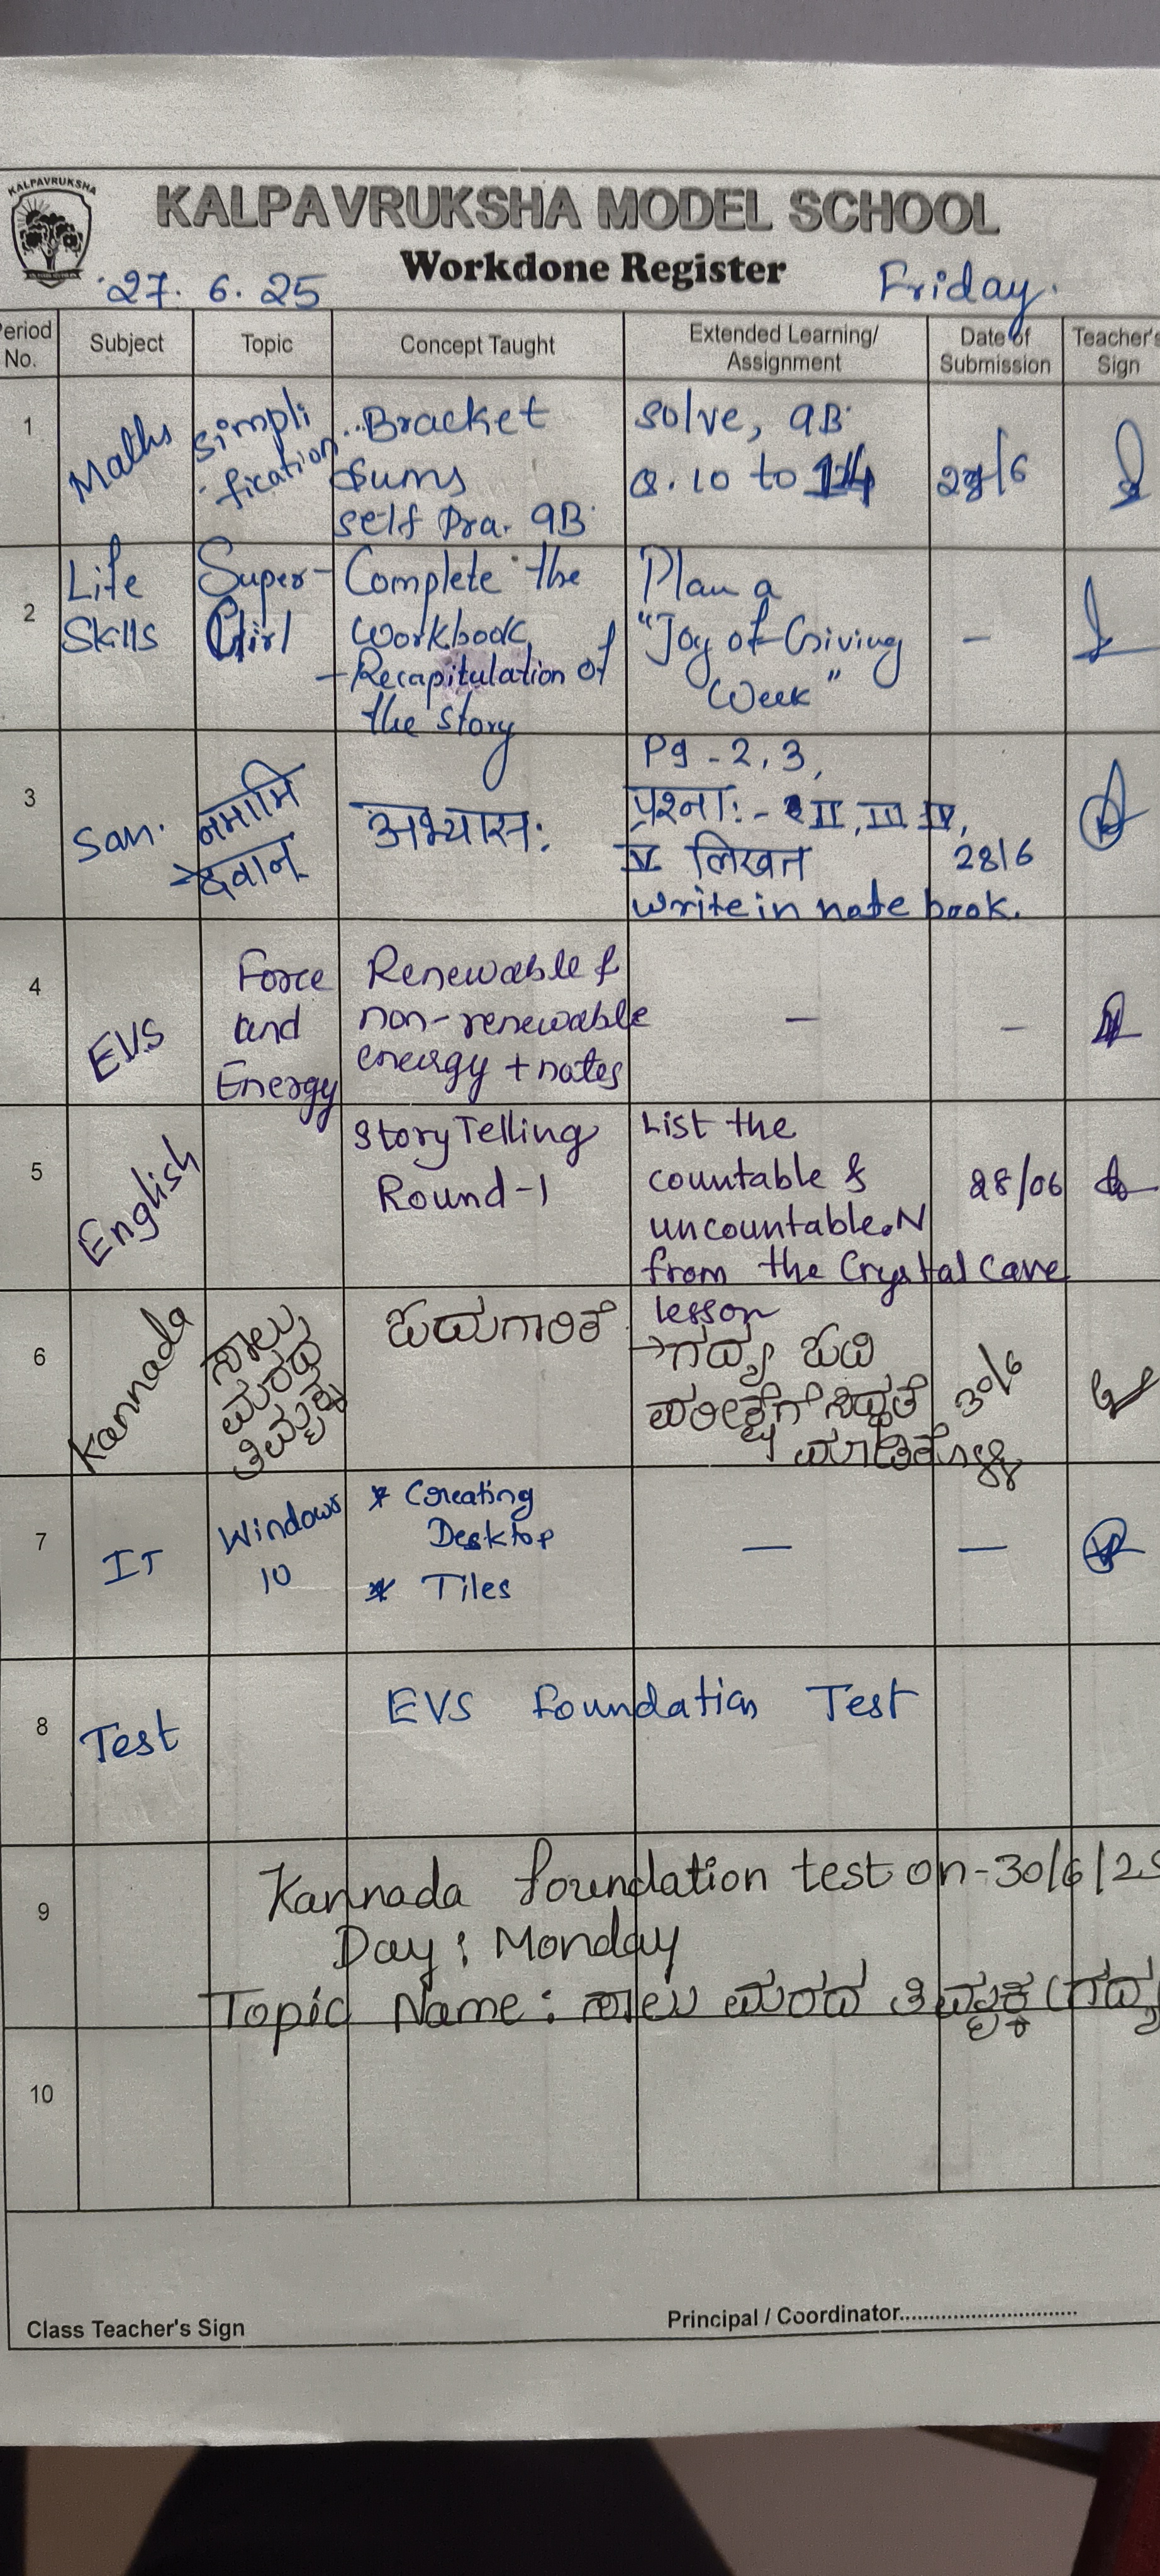 KALPAVRUKSHA
KALPAVRUKSHA MODEL SCHOOL
Workdone Register
27. 6. 25
Friday.
Period No.
Subject
Topic
Concept Taught
Extended Learning/ Assignment
Date of Submission
Teacher's Sign
1
Maths
Simpli
fication
Bracket
Sums
self Pra. 9B
Solve, 9B
Q. 10 to 14
/6
2
Life
Skills
Super-
Girl
Complete the
Workbook
-Recapitulation of
the story
Plan a
"Joy of Giving
Week"
-
3
San.
नमामि
देवान्
अभ्यासः
Pg - 2, 3,
प्रश्नाः - II, III IV,
V लिखत
write in note book.
28/6
4
EVS
Force
and
Energy
Renewable &
non-renewable
energy + notes
-
-
5
English
Story Telling
Round-1
List the
countable &
uncountable.N
from the Crystal Cave
lesson
28/06
6
Kannada
ಸಾಲು
ಮರದ
ತಿಮ್ಮಕ್ಕ
ಓದುಗಾರಿಕೆ
→ಗದ್ಯ ಓದಿ
ಪರೀಕ್ಷೆಗೆ ಸಿದ್ಧತೆ
ಮಾಡಿಕೊಳ್ಳಿ
30/6
7
IT
Windows
10
* Creating
Desktop
* Tiles
-
-
8
Test
EVS Foundation Test
9
Kannada foundation test on-30/6/25
Day : Monday
Topic Name : ಸಾಲು ಮರದ ತಿಮ್ಮಕ್ಕ (ಗದ್ಯ
10
Class Teacher's Sign
Principal / Coordinator..............................